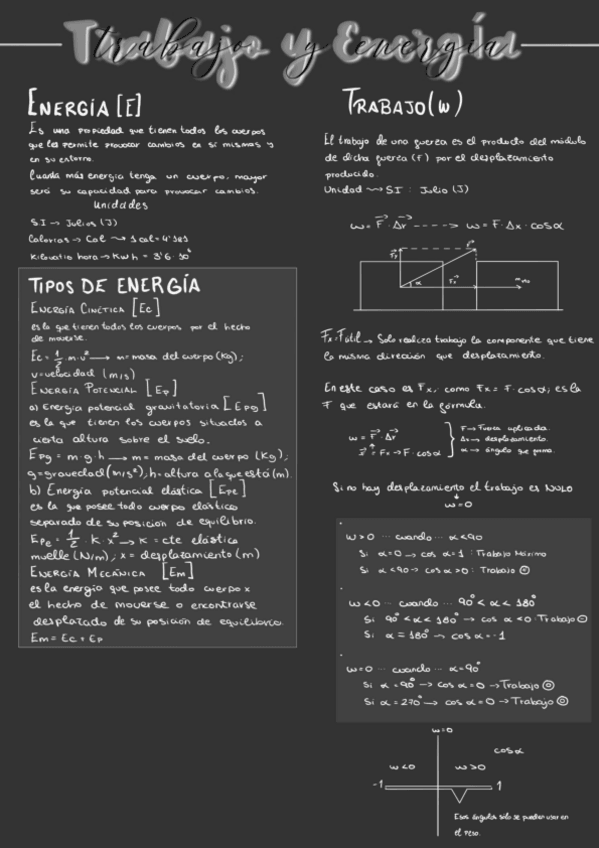 Trabajo y Energía
ENERGÍA [E]
Es una propiedad que tienen todos los cuerpos
que les permite provocar cambios en sí mismos y
en su entorno.
Cuanta más energía tenga un cuerpo, mayor
será su capacidad para provocar cambios.
Unidades
S.I → Julios (J)
Calorías → Cal → 1 cal = 4'181
Kilovatio hora → Kwh = 3'6·10⁶
TIPOS DE ENERGÍA
ENERGÍA CINÉTICA [Ec]
es la que tienen todos los cuerpos por el hecho
de moverse.
Ec = 1/2 m·v² → m = masa del cuerpo (Kg);
v = velocidad (m/s)
ENERGÍA POTENCIAL [Ep]
a) Energía potencial gravitatoria [Epg]
es la que tienen los cuerpos situados a
cierta altura sobre el suelo.
Epg = m·g·h → m = masa del cuerpo (Kg);
g = gravedad (m/s²); h = altura a la que está (m).
b) Energía potencial elástica [Epe]
es la que posee todo cuerpo elástico
separado de su posición de equilibrio.
Epe = 1/2 · K · x² → K = cte elástica
muelle (N/m); x = desplazamiento (m)
ENERGÍA MECÁNICA [Em]
es la energía que posee todo cuerpo x
el hecho de moverse o encontrarse
desplazado de su posición de equilibrio.
Em = Ec + Ep
TRABAJO (W)
El trabajo de una fuerza es el producto del módulo
de dicha fuerza (F) por el desplazamiento
producido.
Unidad → SI : Julio (J)
W = F · Δr ----> W = F · Δx · cosα
F
Fy
α
Fx
Fx = Fútil → Solo realiza trabajo la componente que tiene
la misma dirección que desplazamiento.
En este caso es Fx, como Fx = F·cosα; es la
F que estará en la fórmula.
W = F · Δr
F = Fx → F·cosα
F → Fuerza aplicada.
Δx → desplazamiento.
α → ángulo que forma.
Si no hay desplazamiento el trabajo es NULO
W = 0
W > 0 ... cuando ... α < 90
Si α = 0 → cos α = 1 : Trabajo Máximo
Si α < 90 → cos α > 0 : Trabajo ⊕
W < 0 ... cuando ... 90° < α < 180°
Si 90° < α < 180° → cos α < 0 · Trabajo ⊖
Si α = 180° → cos α = -1
W = 0 ... cuando ... α = 90°
Si α = 90° → cos α = 0 → Trabajo ⓪
Si α = 270° → cos α = 0 → Trabajo ⓪
W = 0
cos α
W < 0
W > 0
-1
1
Esos ángulos solo se pueden usar en